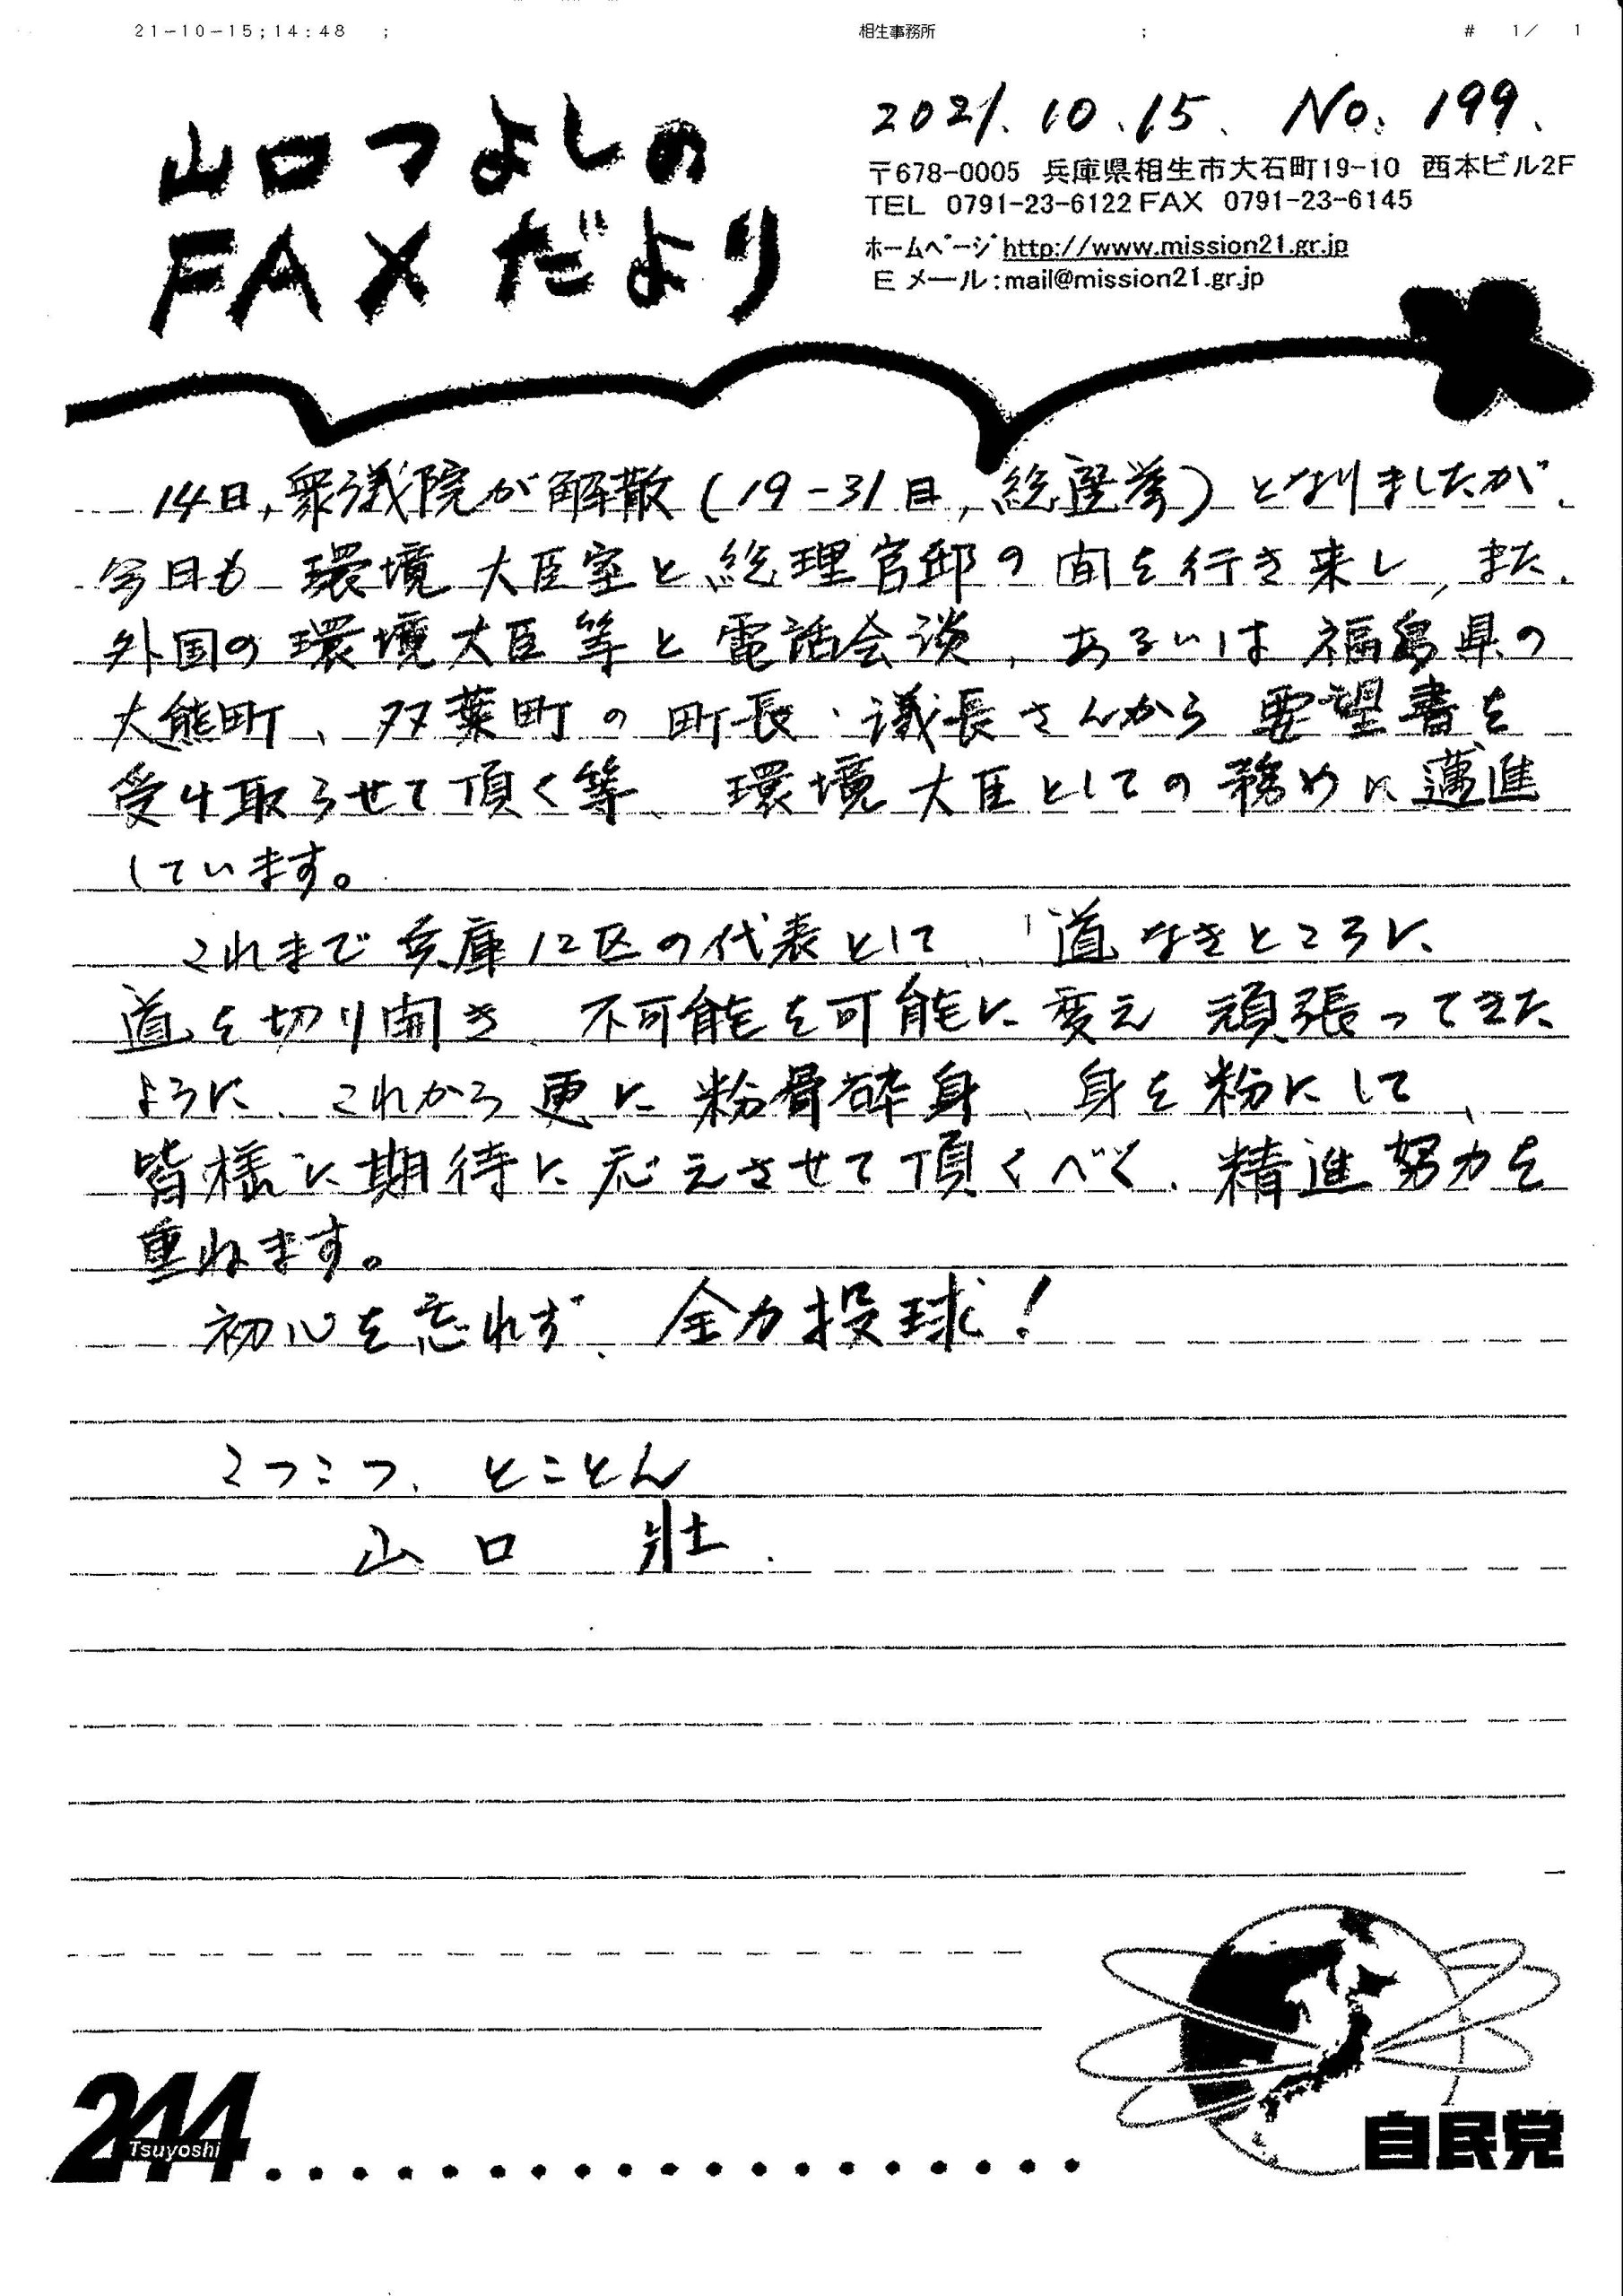 21-10-15;14:48 ; 相生事務所 ; # 1/ 1
山口つよしの
FAXだより
2021.10.15. No.199.
〒678-0005 兵庫県相生市大石町19-10 西本ビル2F
TEL 0791-23-6122 FAX 0791-23-6145
ホームページ http://www.mission21.gr.jp
E メール:mail@mission21.gr.jp
14日,衆議院が解散(19-31日,総選挙)となりましたが、
今日も環境大臣室と総理官邸の間を行き来し,また、
外国の環境大臣等と電話会談、あるいは福島県の
大熊町、双葉町の町長・議長さんから要望書を
受け取らせて頂く等、環境大臣としての務めに邁進
しています。
これまで兵庫12区の代表として、道なきところに
道を切り開き、不可能を可能に変え頑張ってきた
ように、これから更に粉骨砕身、身を粉にして、
皆様に期待に応えさせて頂くべく、精進努力を
重ねます。
初心を忘れず、全力投球!
こつこつ、とことん
山口 壯
244
Tsuyoshi
自民党